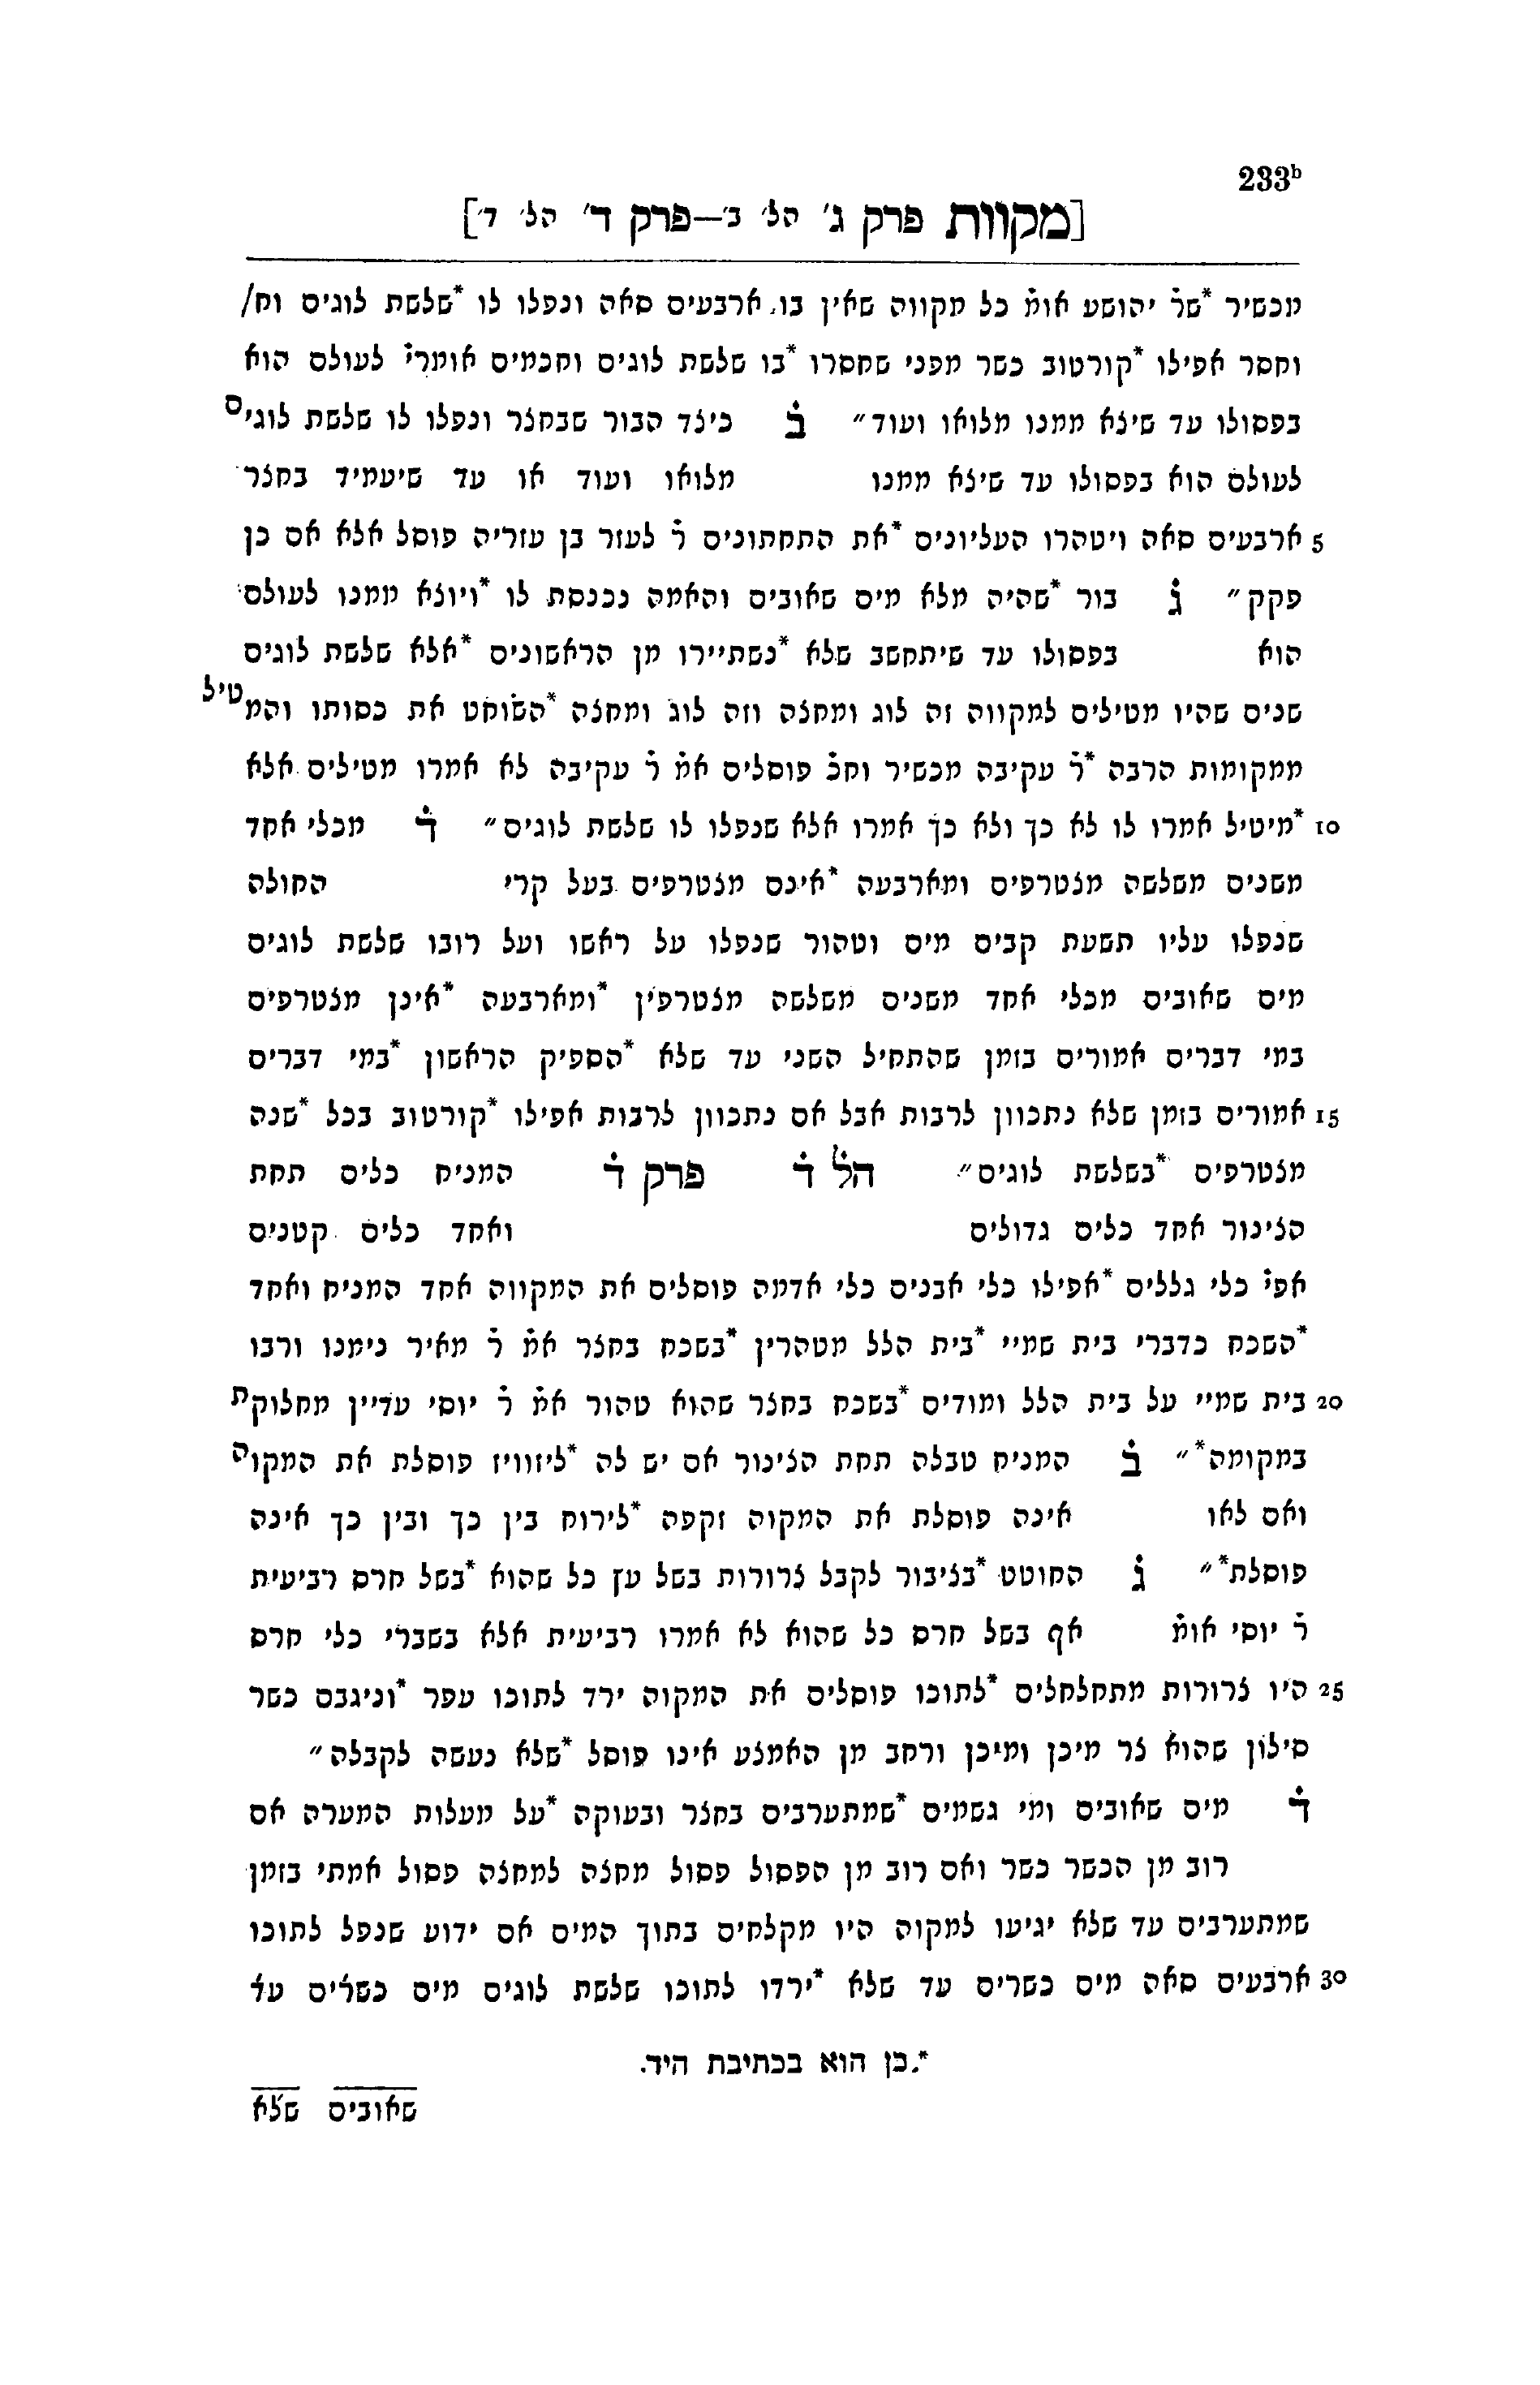 233b
[מקוות פרק ג׳ הל׳ ב׳—פרק ד׳ הל׳ ד׳]
מכשיר *שר׳ יהושע אומ׳ כל מקווה שאין בו ארבעים סאה ונפלו לו *שלשת לוגים וח/
וחסר אפילו *קורטוב כשר מפני שחסרו *בו שלשת לוגים וחכמים אומרי׳ לעולם הוא
בפסולו עד שיצא ממנו מלואו ועוד״ ב׳ כיצד הבור שבחצר ונפלו לו שלשת לוגים
לעולם הוא בפסולו עד שיצא ממנו מלואו ועוד או עד שיעמיד בחצר
5 ארבעים סאה ויטהרו העליונים *את התחתונים ר׳ לעזר בן עזריה פוסל אלא אם כן
פקק״ ג׳ בור *שהיה מלא מים שאובים והאמה נכנסת לו *ויוצא ממנו לעולם
הוא בפסולו עד שיתחשב שלא *נשתיירו מן הראשונים *אלא שלשת לוגים
שנים שהיו מטילים למקווה זה לוג ומחצה וזה לוג ומחצה *השוחט את כסותו והמטיל
ממקומות הרבה *ר׳ עקיבה מכשיר וחכ׳ פוסלים אמ׳ ר׳ עקיבה לא אמרו מטילים אלא
10 *מיטיל אמרו לו לא כך ולא כך אמרו אלא שנפלו לו שלשת לוגים״ ד׳ מכלי אחד
משנים משלשה מצטרפים ומארבעה *אינם מצטרפים בעל קרי החולה
שנפלו עליו תשעת קבים מים וטהור שנפלו על ראשו ועל רובו שלשת לוגים
מים שאובים מכלי אחד משנים משלשה מצטרפין *ומארבעה *אינן מצטרפים
במי דברים אמורים בזמן שהתחיל השני עד שלא *הספיק הראשון *במי דברים
15 אמורים בזמן שלא נתכוון לרבות אבל אם נתכוון לרבות אפילו *קורטוב בכל *שנה
מצטרפים *בשלשת לוגים״ הל׳ ד׳ פרק ד׳ המניח כלים תחת
הצינור אחד כלים גדולים ואחד כלים קטנים
אפי׳ כלי גללים *אפילו כלי אבנים כלי אדמה פוסלים את המקווה אחד המניח ואחד
*השכח כדברי בית שמיי *בית הלל מטהרין *בשכח בחצר אמ׳ ר׳ מאיר נימנו ורבו
20 בית שמיי על בית הלל ומודים *בשכח בחצר שהוא טהור אמ׳ ר׳ יוסי עדיין מחלוקת
במקומה*״ ב׳ המניח טבלה תחת הצינור אם יש לה *ליזוויז פוסלת את המקוה
ואם לאו אינה פוסלת את המקוה זקפה *לירוח בין כך ובין כך אינה
פוסלת*״ ג׳ החוטט *בציבור לקבל צרורות בשל עץ כל שהוא *בשל חרס רביעית
ר׳ יוסי אומ׳ אף בשל חרס כל שהוא לא אמרו רביעית אלא בשברי כלי חרס
25 היו צרורות מתחלחלים *לתוכו פוסלים את המקוה ירד לתוכו עפר *וניגבם כשר
סילון שהוא צר מיכן ומיכן ורחב מן האמצע אינו פוסל *שלא נעשה לקבלה״
ד׳ מים שאובים ומי גשמים *שמתערבים בחצר ובעוקה *על מעלות המערה אם
רוב מן הכשר כשר ואם רוב מן הפסול פסול מחצה למחצה פסול אמתי בזמן
שמתערבים עד שלא יגיעו למקוה היו מקלחים בתוך המים אם ידוע שנפל לתוכו
30 ארבעים סאה מים כשרים עד שלא *ירדו לתוכו שלשת לוגים מים כשרים עד
*.כן הוא בכתיבת היד.
שאובים שלא